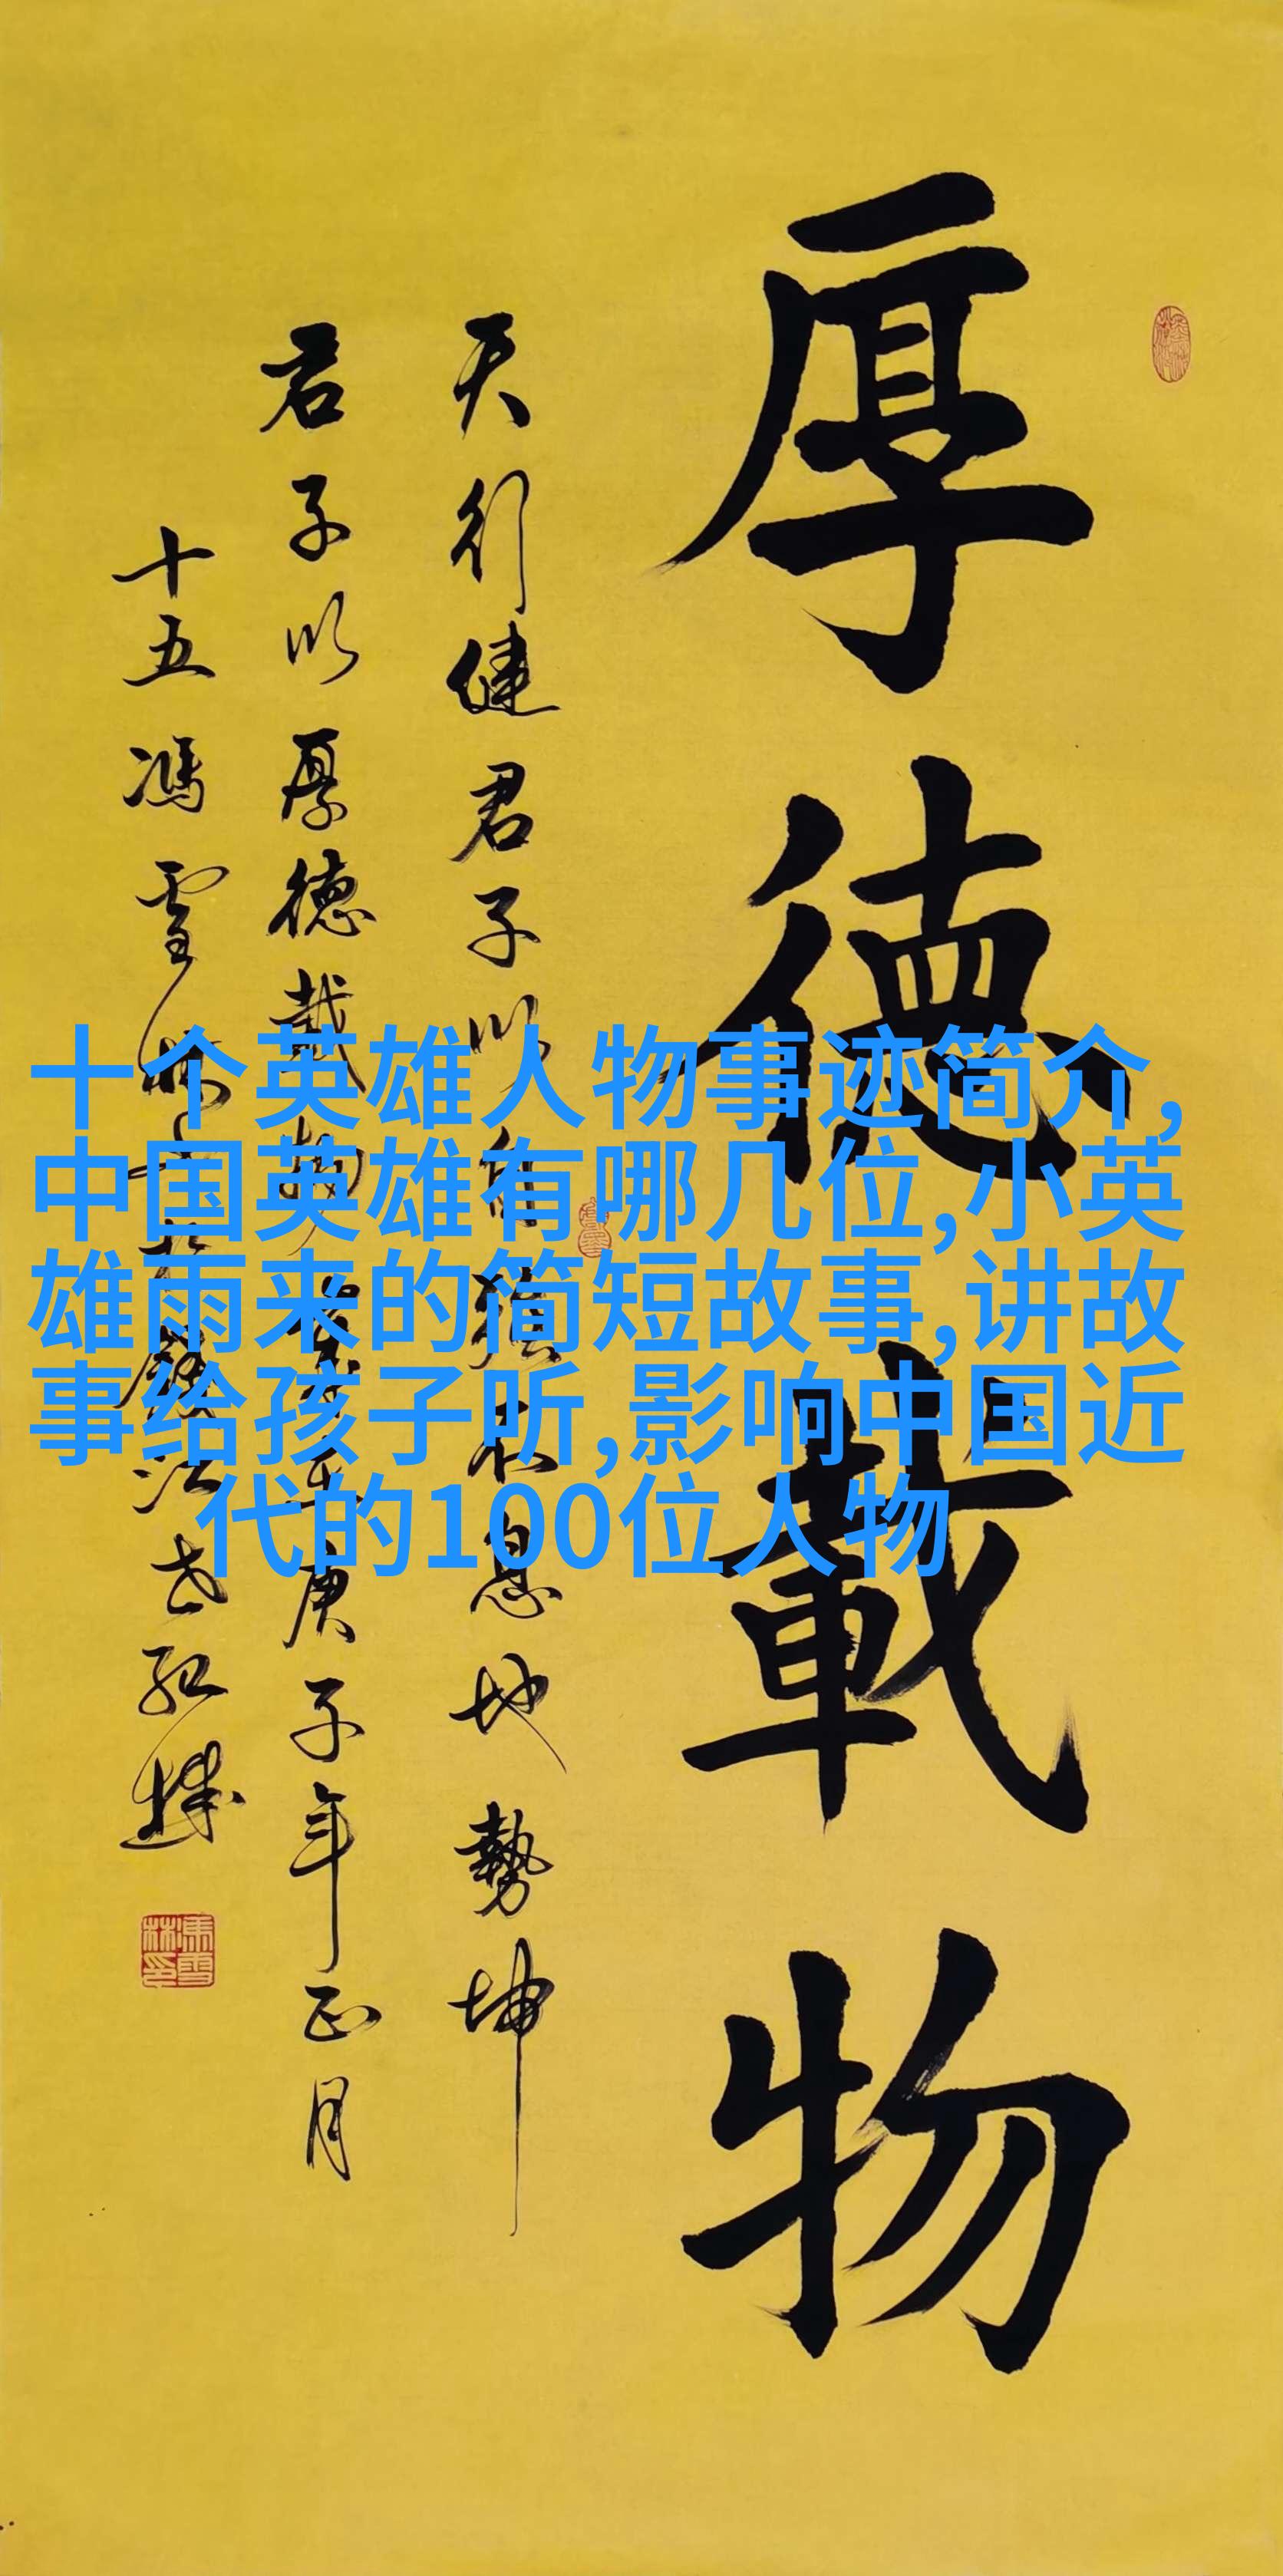 厚德載物
天行健君子以自強不息地勢坤
君子以厚德載物
庚子年正月
十五馮雪林
十个英雄人物事迹简介,
中国英雄有哪几位,小英
雄雨来的简短故事,讲故
事给孩子听,影响中国近
代的100位人物
馮雪林印